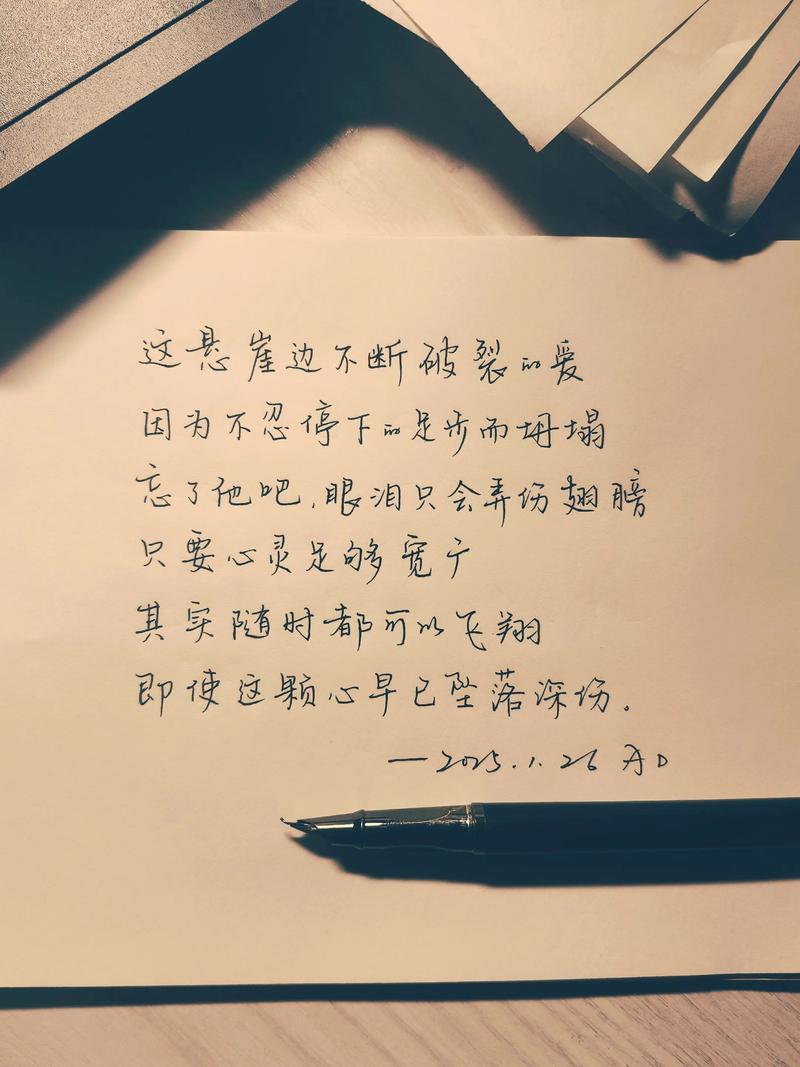 这悬崖边不断破裂的爱
因为不忍停下的足步而坍塌
忘了他吧,眼泪只会弄伤翅膀
只要心灵足够宽广
其实随时都可以飞翔
即使这颗心早已坠落深伤。
—2025.1.26 AD